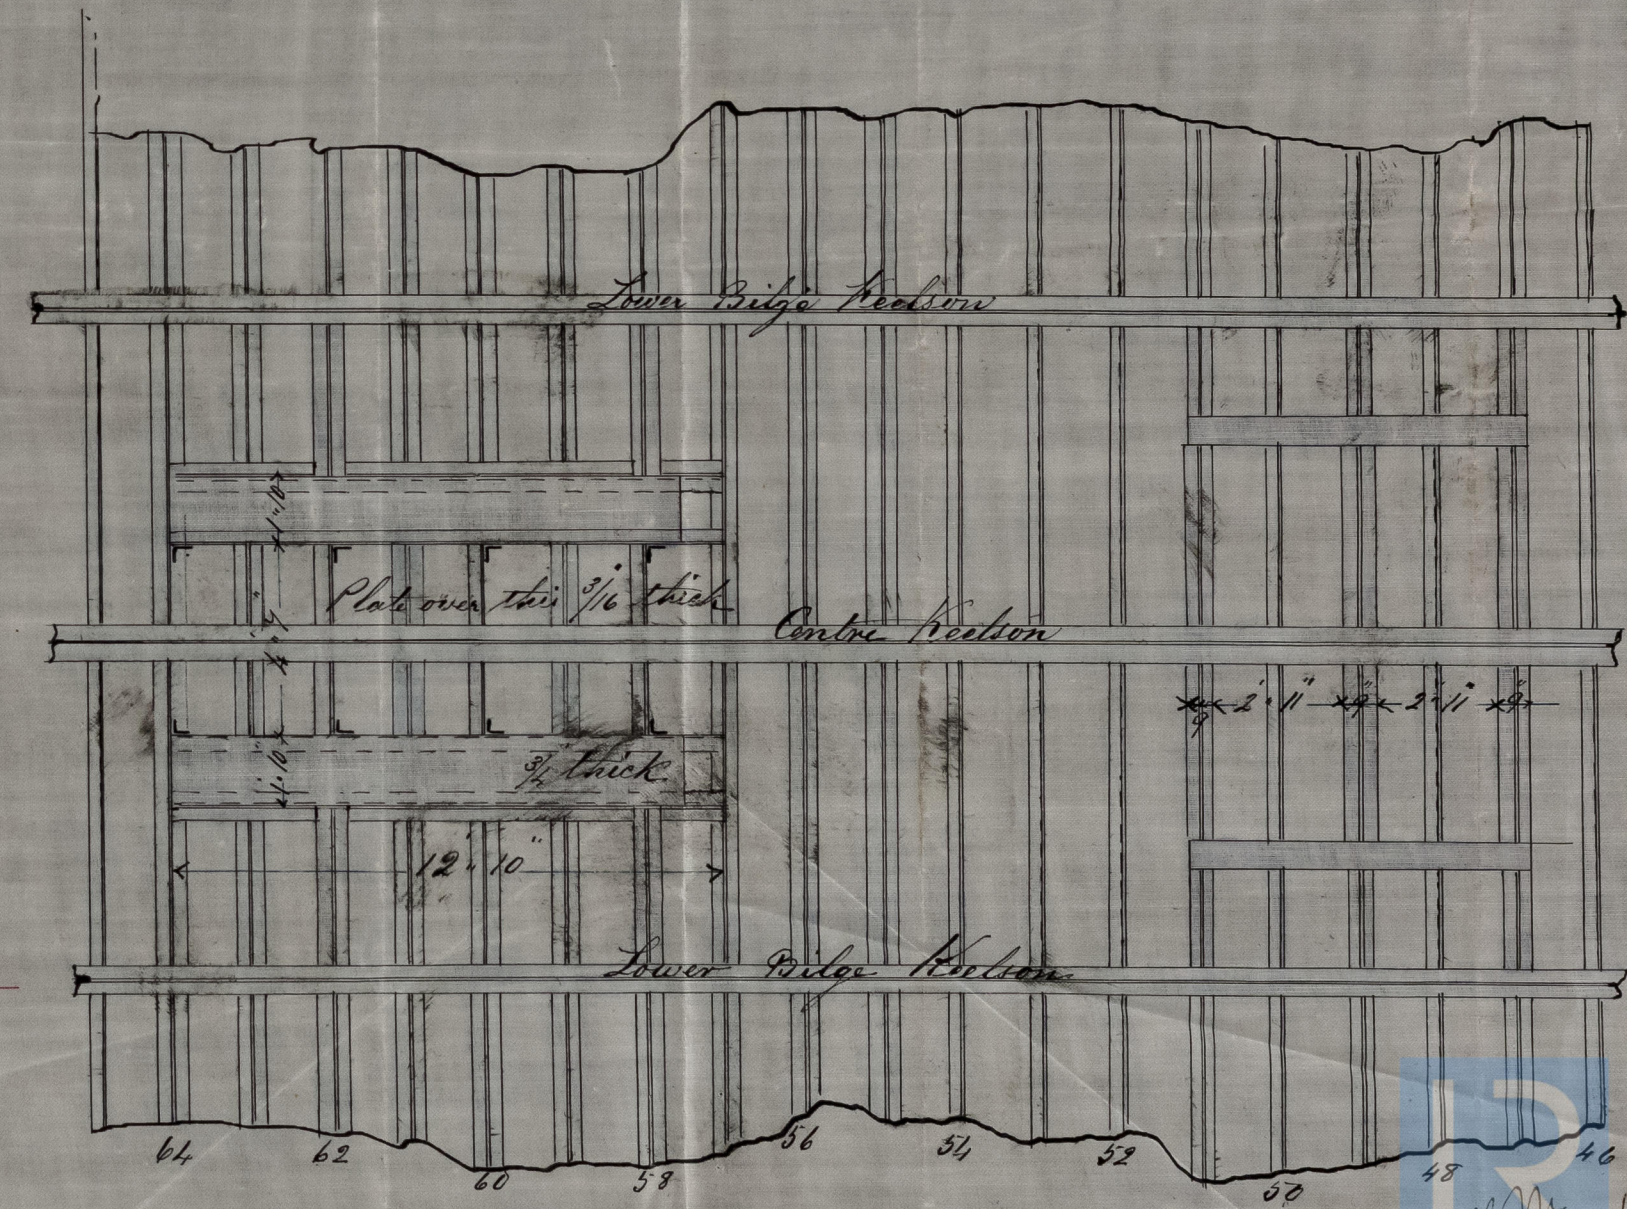 Lower Bilge Keelson
1'·10"
Plate over this 3/16" thick
4'·7"
Centre Keelson
9" 2'·11" 9" 2'·11" 9"
1'·10"
3/4 thick
12'·10"
Lower Bilge Keelson
64 62 60 58 56 54 52 50 48 46